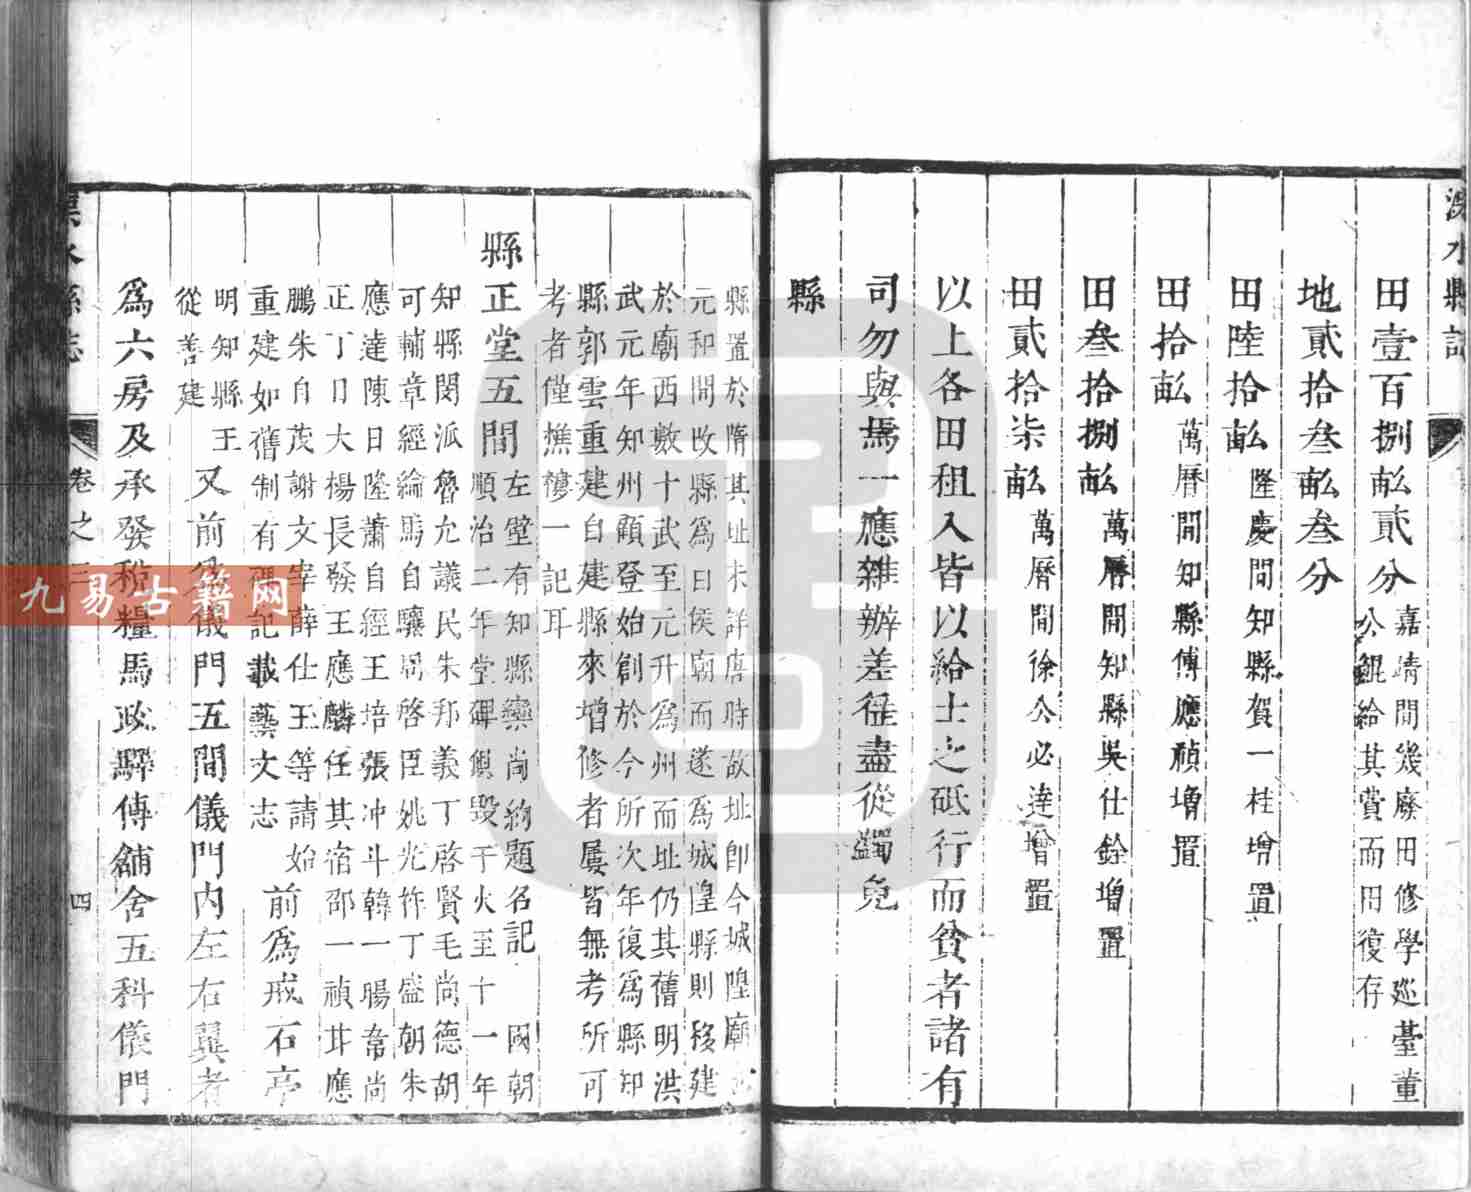 田壹百捌畆貳分嘉靖間幾廢田修學巡臺董
公鯤給其費而田復存
地貳拾叁畆叁分
田陸拾畆隆慶間知縣賀一桂增置
田拾畆萬曆間知縣傅應禎增置
田叁拾捌畆萬曆間知縣吳仕銓增置
田貳拾柒畆萬曆間徐公必達增置
以上各田租入皆以給士之砥行而貧者諸有
司勿與焉一應雜辦差徭盡從蠲免
縣
縣置於隋其址未詳唐時故址卽今城隍廟
元和間改縣爲曰侯廟而遂爲城隍縣則移建
於廟西數十武至元升爲州而址仍其舊明洪
武元年知州顧登始創於今所次年復爲縣知
縣郭雲重建自建縣來增修者屢皆無考所可
考者僅樵樓一記耳
縣正堂五間左壁有知縣欒尚約題名記國朝
順治二年堂碑俱毀于火至十一年
知縣閔派魯允議民朱邦義丁啓賢毛尚德胡
可輔章經綸馬自驤馬啓臣姚光祚丁盛朝朱
應達陳日隆蕭自經王培張冲斗韓一暘韋尚
正丁日大楊長發王應麟任其宿邵一禎耳應
鵬朱自茂謝文宰薛仕玉等請始
重建如舊制有碑記載藝文志前爲戒石亭
明知縣王
從善建又前爲儀門五間儀門內左右翼者
爲六房及承發稅糧馬政驛傳舖舍五科儀門
溧水縣志
卷之三
四
九易古籍网